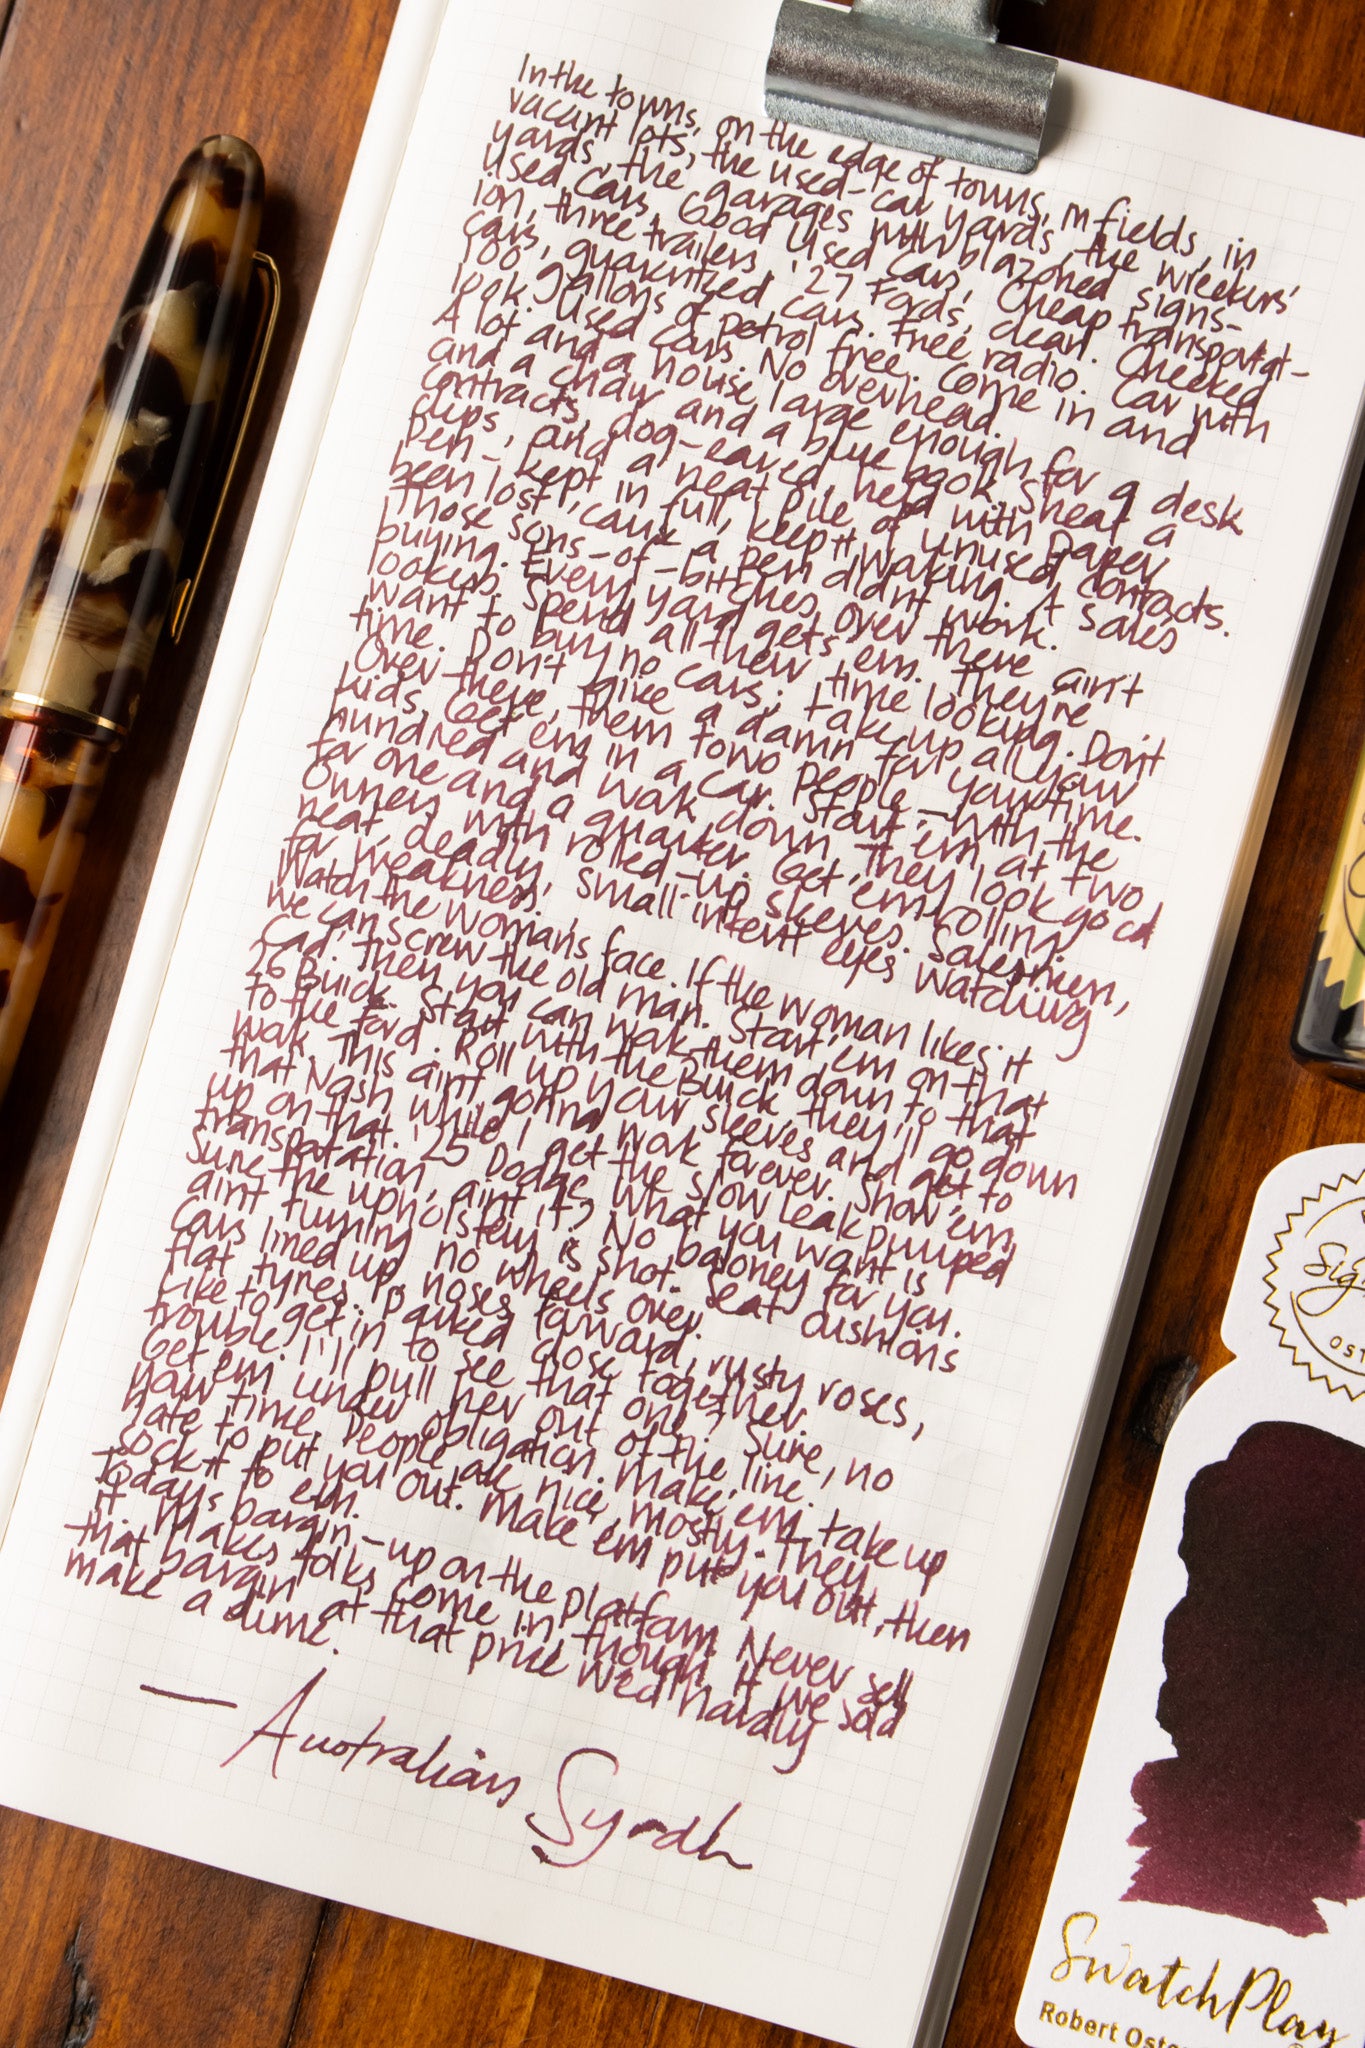 In the towns, on the edge of towns, in fields, in
vacant lots, the used-car yards, the wreckers'
yards, the garages with blazoned signs-
Used Cars, Good Used Cars, Cheap transportat-
ion, three trailers. '27 Fords, clean. Checked
cars, guarantzed cars. Free radio. Car with
100 gallons of petrol free. Come in and
look. Used Cars. No overhead.
A lot and a house large enough for a desk
and a chair and a blue book. Sheat a
contracts, dog-eared, held with paper
clips, and a neat pile of unused contracts.
Pen-, kept in full, keep it working. A sales
been lost, cause a pen didnt work.
Those sons-of-bitches over there ain't
buying. Every yard gets em. They're
lookers. Spend all their time looking. Don't
want to buy no cars; take up all your
time. Don't give a damn for your time.
Over there, them towo people - with the
kids. Get em in a car. Start 'em at two
hundred and work down. They look good
for one and a quarter. Get 'em rolling
Owners with rolled-up sleeves. Salesmen,
neat, deadly, small intent eyes watching
for weakness.
Watch the woman's face. If the woman likes it
we can screw the old man. Start 'em on that
Cad'. Then you can work them down to that
26 Buick. Start with the Buick they'll go down
to the ford. Roll up your sleeves and get to
work. This aint gonna work forever. Show 'em
that Nash while I get the slow leak pumped
up on that. '25 Dodge. What you want is
transportation, aint it? No baloney for you.
Sure the upholstery is shot. Seat cushions
aint turning no wheels over.
Cars lined up, noses forward, rusty roses,
flat tyres. Parked close together.
Like to get in to see that one? Sure, no
trouble. I'll pull her out of the line.
Get em under obligation. Make em take up
your time. People are nice, mostly. They
hate to put you out. Make em put you out, then
sock it to em.
Todays bargin - up on the platform. Never sell
it. Makes folks come in though. If we sold
that bargin at that price we'd hardly
make a dime.
— Australian Syrah
OST
SwatchPlay
Robert Oster